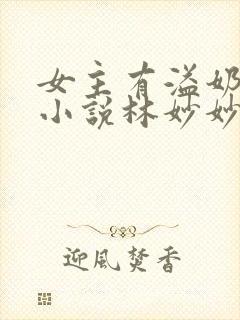 女主有溢奶
小說林妙妙
迎風焚香